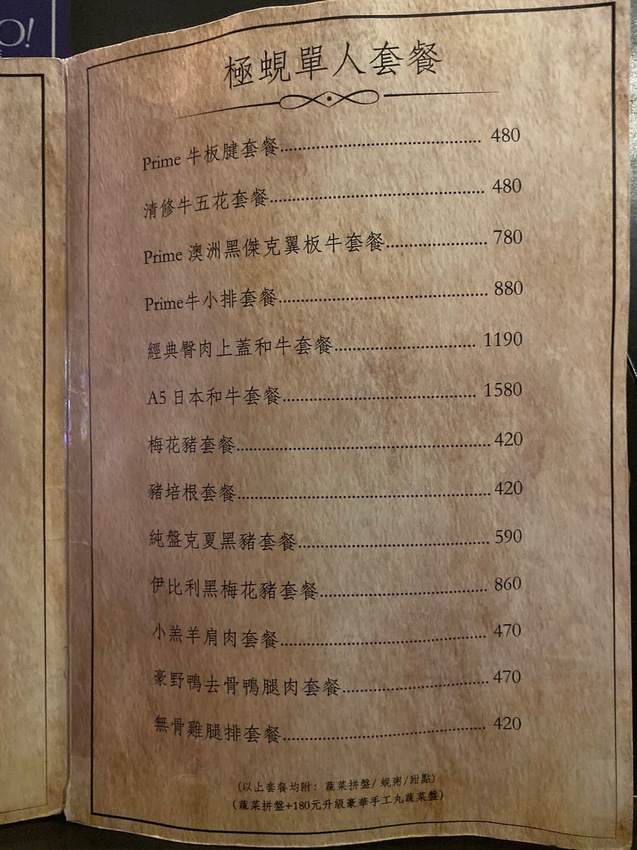 O!
極蜆單人套餐
Prime 牛板腱套餐 480
清修牛五花套餐 480
Prime 澳洲黑傑克翼板牛套餐 780
Prime牛小排套餐 880
經典臀肉上蓋和牛套餐 1190
A5 日本和牛套餐 1580
梅花豬套餐 420
豬培根套餐 420
純盤克夏黑豬套餐 590
伊比利黑梅花豬套餐 860
小羔羊肩肉套餐 470
豪野鴨去骨鴨腿肉套餐 470
無骨雞腿排套餐 420
(以上套餐均附: 蔬菜拼盤/蜆粥/甜點)
(蔬菜拼盤+180元升級豪華手工丸蔬菜盤)